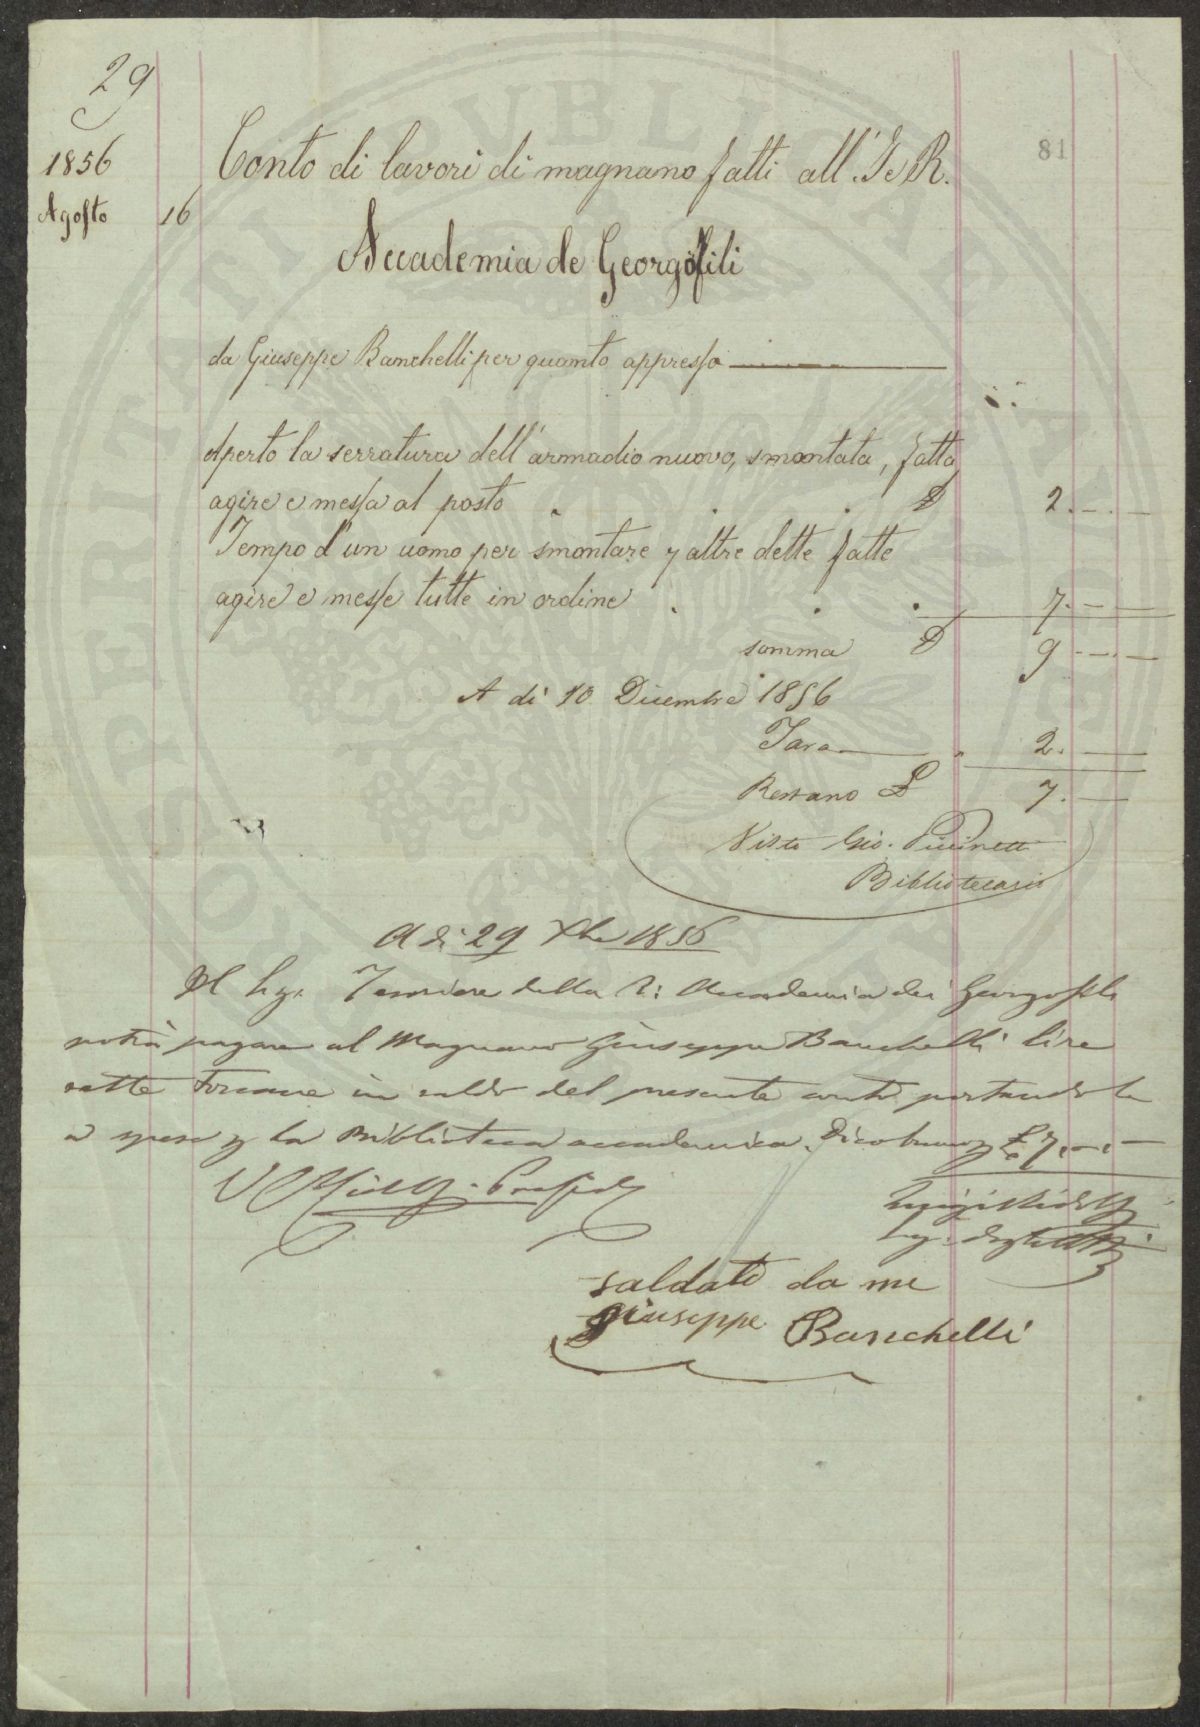 29
81
1856
Agosto 16
Conto di lavori di magnano fatti all'. I e R.
Accademia de Georgofili
da Giuseppe Banchelli per quanto appresso
Aperto la serratura dell'armadio nuovo, smontata, fatta
agire e messa al posto . . . £ 2. — —
Tempo d'un uomo per smontare 7 altre dette fatte
agire e messe tutte in ordine . . . 7. — —
somma £ 9 — —
A di 10 Dicembre 1856
Tara 2. —
Restano £ 7. —
Visto Gio.
Bibliotecario
A di 29 Xbre 1856
Il Sig. Tesoriere della R: Accademia dei Georgofili
potrà pagare al Magnano Giuseppe Banchelli lire
sette Toscane in saldo del presente conto portandole
a spese p la Biblioteca accademica. Dico £ 7. — —
saldato da me
Giuseppe Banchelli